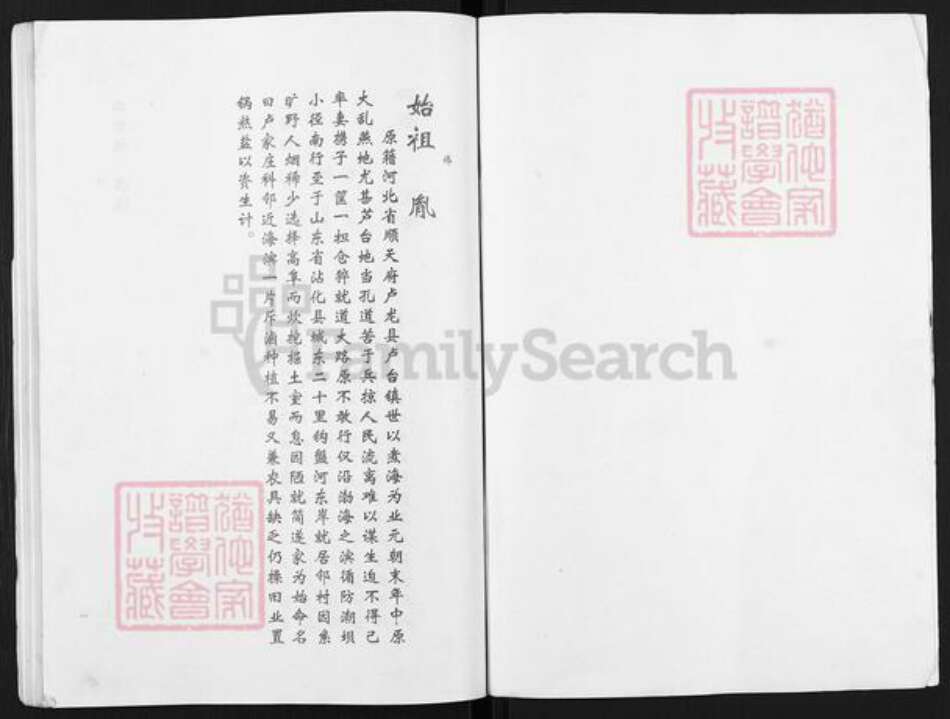 始祖 胤
原籍河北省顺天府卢龙县卢台镇世以煮海为业元朝末年中原
大乱燕地尤甚芦台地当孔道苦于兵掠人民流离难以谋生迫不得已
率妻携子一筐一担仓猝就道大路原不敢行仅沿渤海之滨循防潮坝
小径南行至于山东省沾化县城东二十里钩盤河东岸就居邻村因系
旷野人烟稀少选择高阜而炊挖掘土室而息因陋就简遂家为始命名
曰卢家庄科邻近海滨一片斥滷种植不易又兼农具缺乏仍操旧业置
锅熬盐以资生计。
FamilySearch
譜學會
收藏
譜學會
收藏